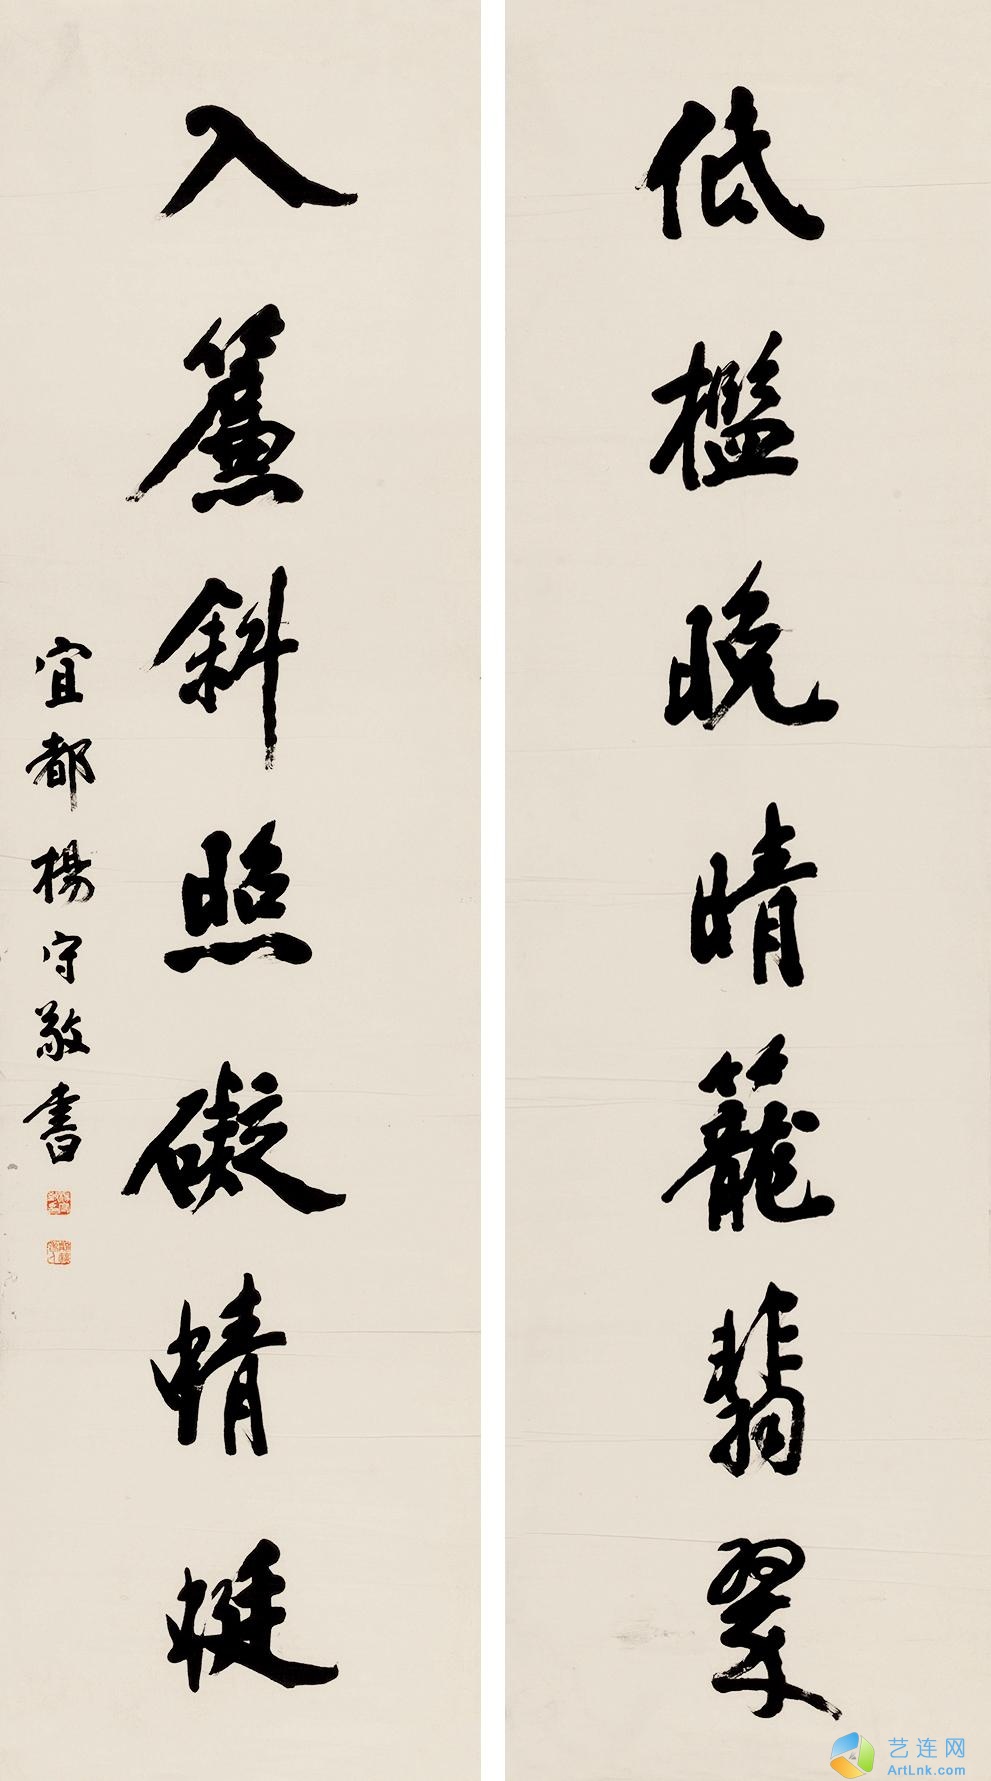 低檻晚晴籠翡翠
入簾斜照礙蜻蜓
宜都楊守敬書
艺连网
ArtLnk.com